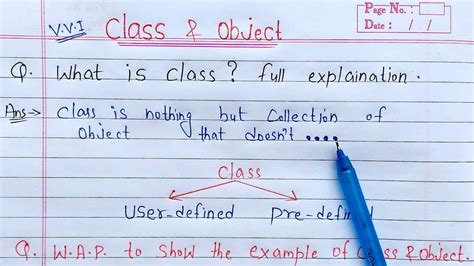 Page No. :
Date : / /
V.V.I Class & Object
Q. What is class? full explaination.
Ans→ Class is nothing but Collection of
Object that doesn't ....
Class
User-defined Pre-defined
Q. W.A.P. to show the example of Class & Object.